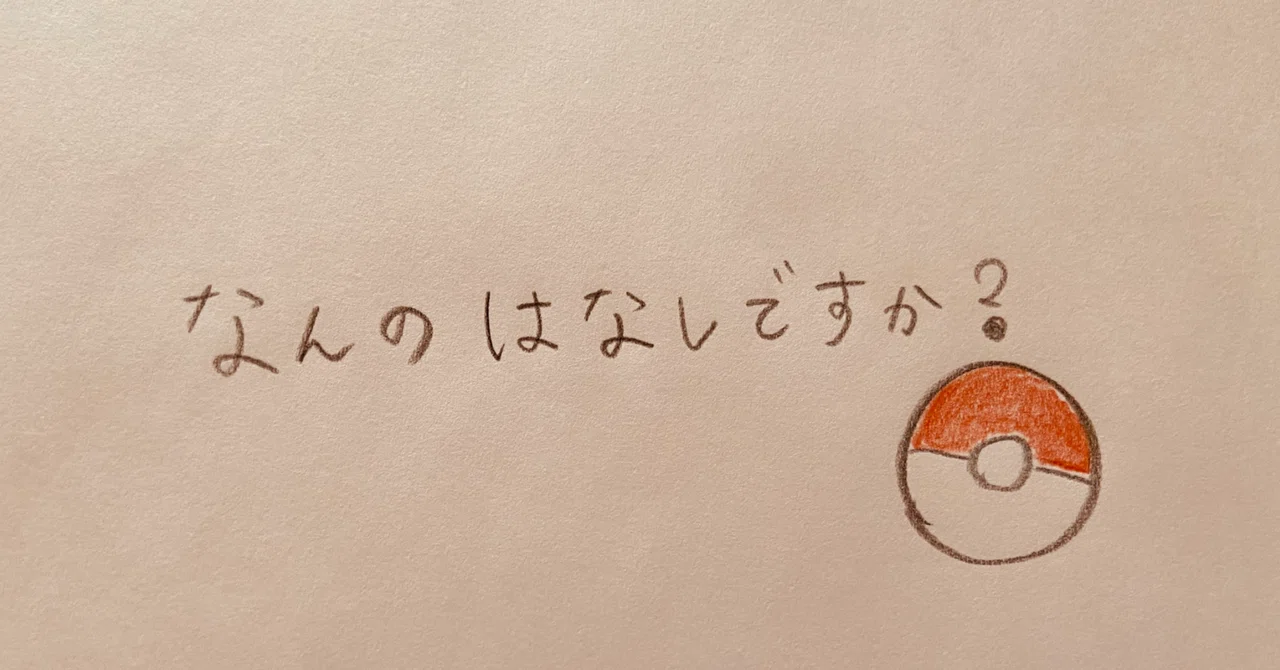 なんのはなしですか?